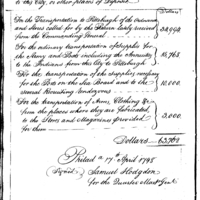 to this City, or other places of Deposit
Dollars
For the Transportation to Pittsburgh of the Ordnance
and Stores called for by the Returns lately received
from the Commanding General
For the ordinary transportation of Supplies for
the Army and Posts including the Annuities
to the Indians from this City to Pittsburgh
16,765
For the transportation of the supplies necessary
for the Posts on the Sea Board and to the
several Recruiting Rendezvous
10,000
For the transportation of Arms, Clothing &c
from the places where they are fabricated,
to the Stores and Magazines provided
for them
3,000
Dollars 63,760
Philad a 17 April 1795
Signed Samuel Hodgdon
for the Quarter Mast Genl